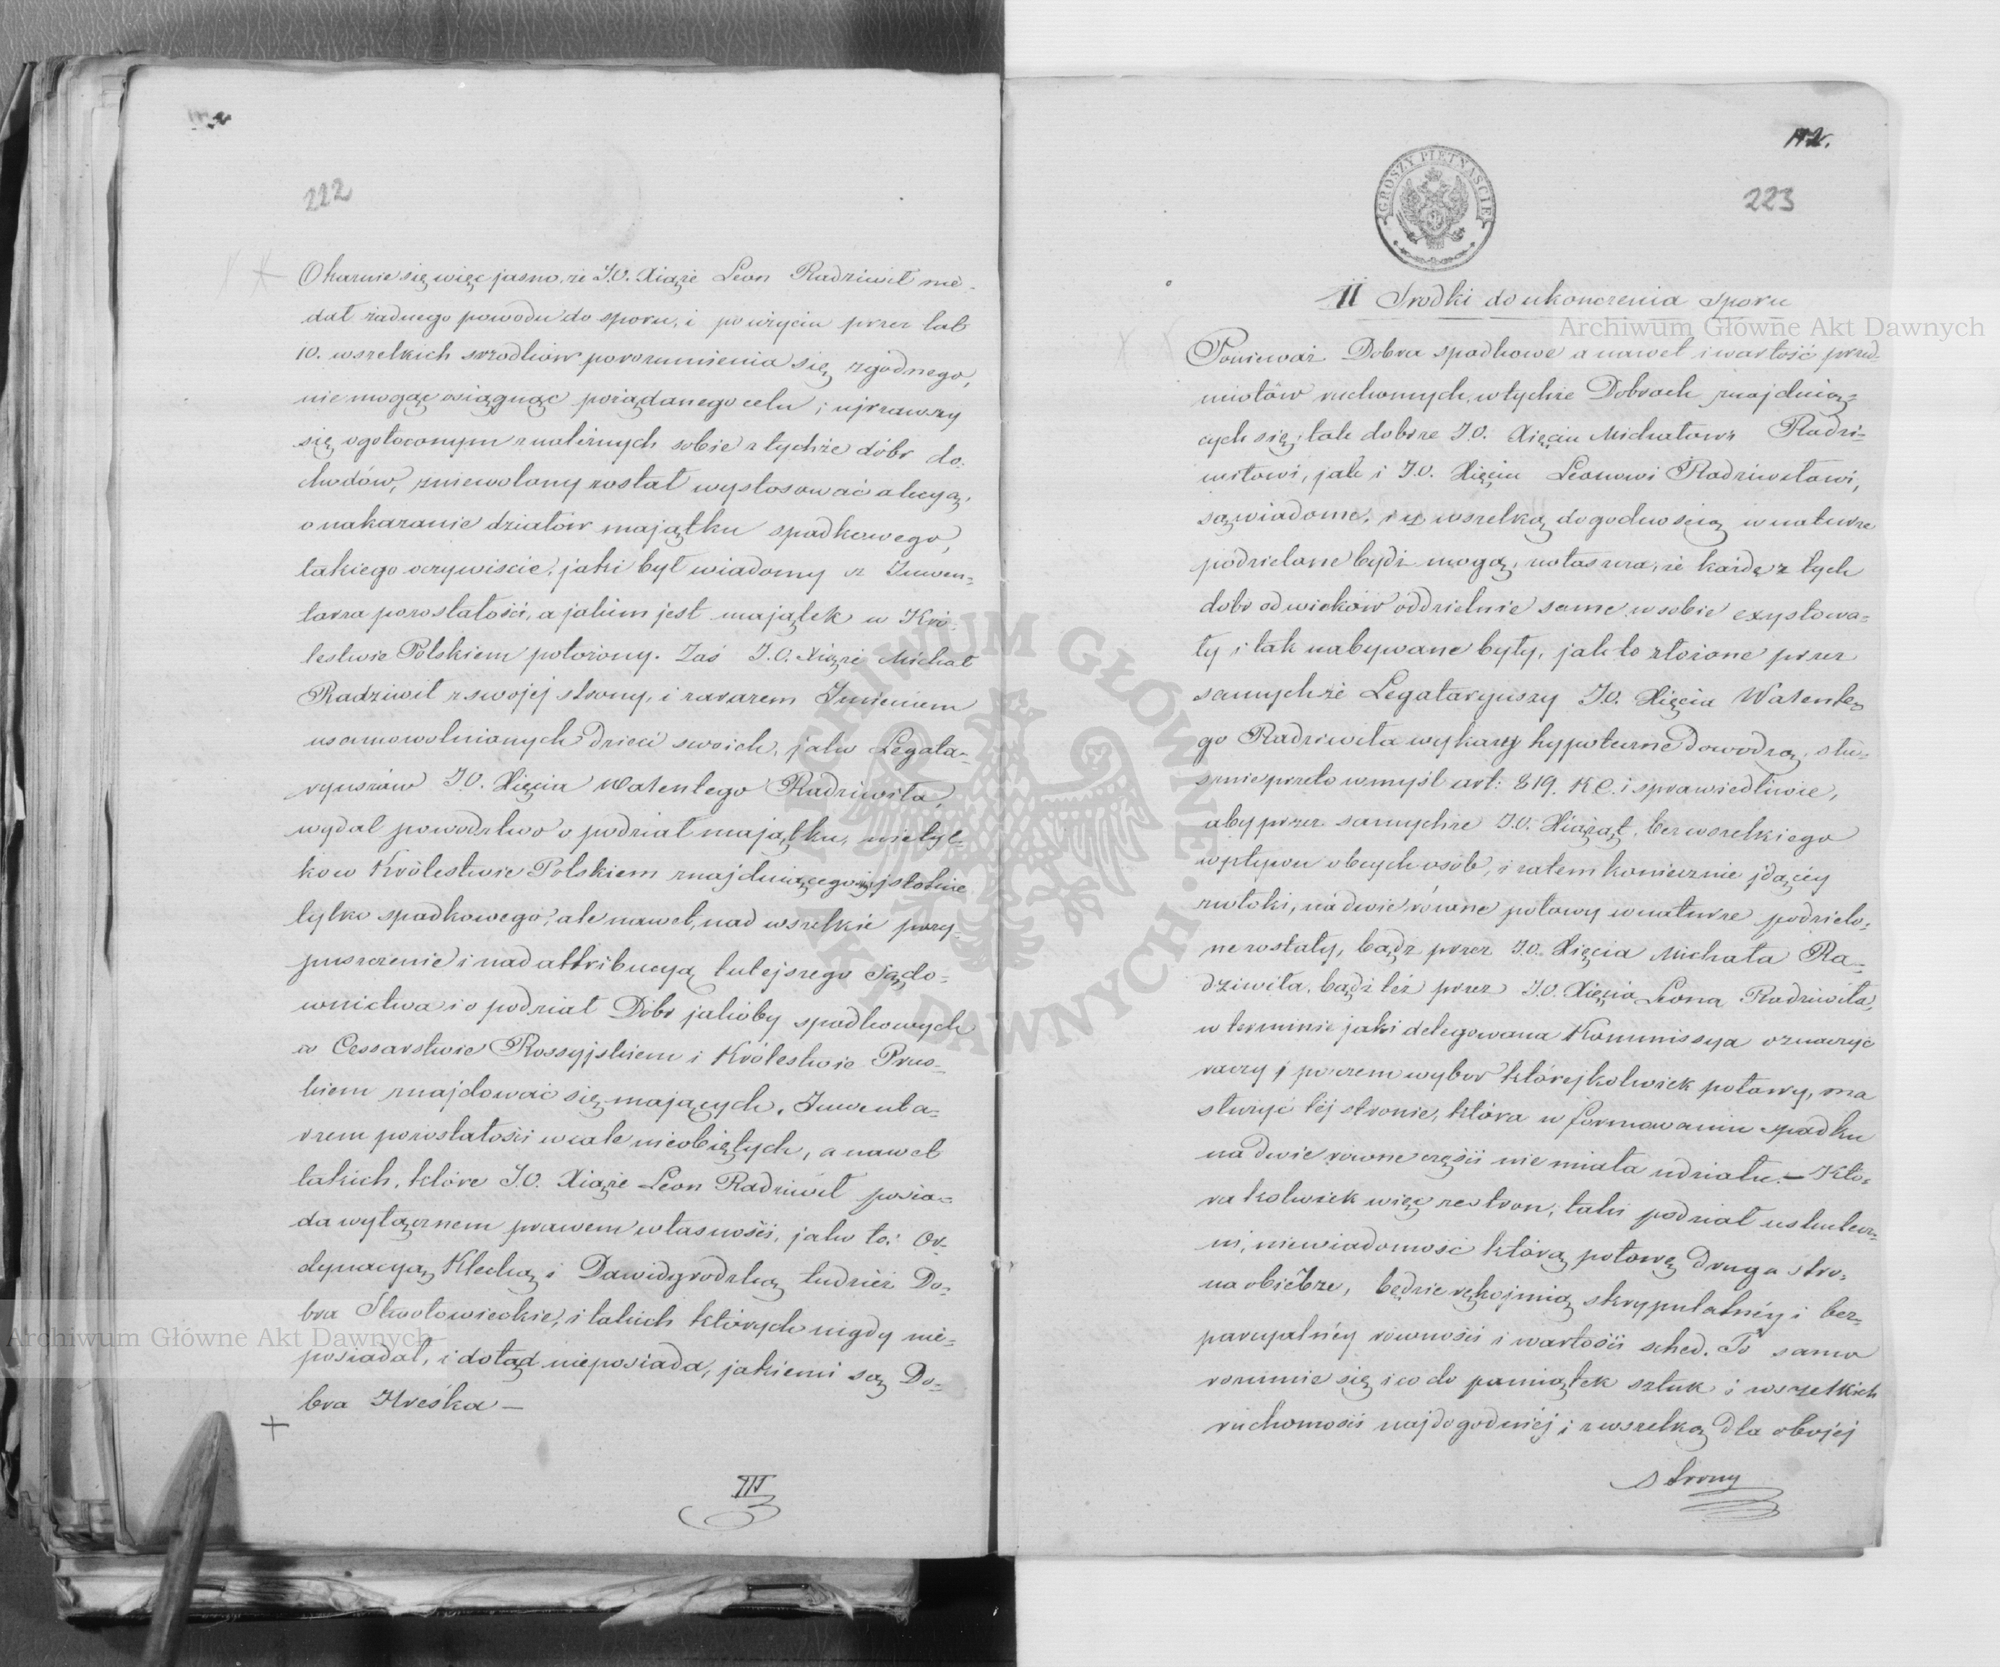 222
Okazuie się więc jasno, że J.O. Xiąże Leon Radziwił nie
dał żadnego powodu do sporu, i po użyciu przez lat
10. wszelkich srzodków porozumienia się zgodnego,
nie mogąc osiągnąc pożądanego celu, i ujrzawszy
się ogołoconym z należnych sobie z tychże dóbr do-
chodów, zniewolony został wystosować akcyą,
o nakazanie działów majątku spadkowego,
takiego oczywiscie, jaki był wiadomy z Inwen-
tarza pozostałości, a jakim jest majątek w Kró-
lestwie Polskiem położony. Zaś J.O. Xiąże Michał
Radziwił z swojej strony, i zarazem Imieniem
usamowolnionych Dzieci swoich, jako Legata-
ryuszów J.O. Xięcia Walentego Radziwiła,
wydał powodztwo o podział majątku, nietyl-
ko w Królestwie Polskiem znajduiącego się istotnie
tylko spadkowego, ale nawet, nad wszelkie przy-
puszczenie i nad attribucyą tutejszego Sądo-
wnictwa i o podział Dóbr jakoby spadkowych
w Cessarstwie Rossyjskiem i Królestwie Prus-
kiem znajdować się mających, Inwenta-
rzem pozostałości wcale nieobiętych, a nawet
takich, które J.O. Xiąże Leon Radziwił posia-
da wyłącznem prawem własności, jako to: Or-
dynacyą Klecką i Dawidgrodzką tudzież Do-
bra Skwotowieckie, i takich których nigdy nie-
posiadał, i dotąd nieposiada, jakiemi są Do-
bra Hreśka —
III
142.
223
GROSZY PIĘTNAŚCIE
II Srodki do ukonczenia sporu
Ponieważ Dobra spadkowe a nawet i wartość przed-
miotów ruchomych, w tychże Dobrach znajduią-
cych się, tak dobrze J.O. Xięciu Michałowi Radzi-
wiłowi, jak i J.O. Xięciu Leonowi Radziwiłowi,
są wiadome, i z wszelką dogodnością w naturze
podzielane bydź mogą, zwłaszcza, że każde z tych
dobr od wieków oddzielnie same w sobie exystowa-
ły i tak nabywane były, jak to złożone przez
samychże Legataryuszy J.O. Xięcia Walente-
go Radziwiła wykazy hypoteczne dowodzą, słu-
sznie przeto w myśl art: 819. K.C. i sprawiedliwie,
aby przez samychże J.O. Xiążąt, bez wszelkiego
wpływu obcych osób, i zatem koniecznie idącéy
zwłoki, na dwie równe połowy w naturze podzielo-
ne zostały, bądź przez J.O. Xięcia Michała Ra-
dziwiła, bądź téż przez J.O. Xięcia Leona Radziwiła,
w terminie jaki delegowana Kommissya oznaczyć
raczy, poczem wybor którejkolwiek połowy, ma
służyć téj stronie, która w formowaniu spadku
na dwie rowne części nie miała udziału. — Któ-
ra kolwiek więc ze stron, taki podział uskutecz-
ni, niewiadomość którą połowę druga stro-
na obierze, będzie rękojmią skrypulatnéy i bez-
parcyalnéy równości i wartości sched. To samo
rozumie się i co do pamiątek sztuk i wszelkich
ruchomości najdogodniéj i z wszelką dla obojéj
strony
Archiwum Główne Akt Dawnych
Archiwum Główne Akt Dawnych
ARCHIWUM GŁÓWNE AKT DAWNYCH